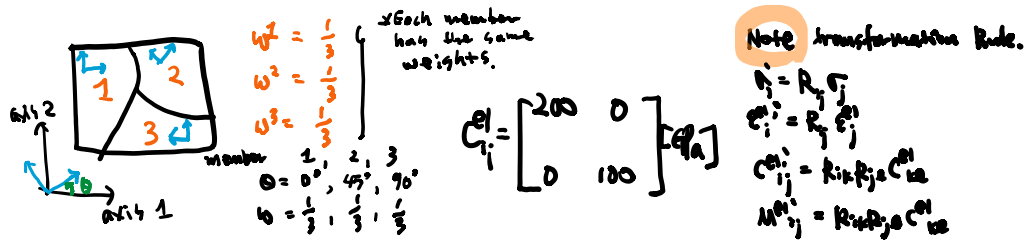 1
2
3
axis 2
axis 1
θ
w¹ = 1/3
w² = 1/3
w³ = 1/3
* Each member
has the same
weights.
member 1, 2, 3
θ = 0°, 45°, 90°
w = 1/3, 1/3, 1/3
C^el_ij = [200 0
0 100] [GPa]
Note transformation Rule.
σ'_i = R_ij σ_j
ε^el'_i = R_ij ε^el_j
C^el'_ij = R_ik R_jl C^el_kl
M^el'_ij = R_ik R_jl C^el_kl